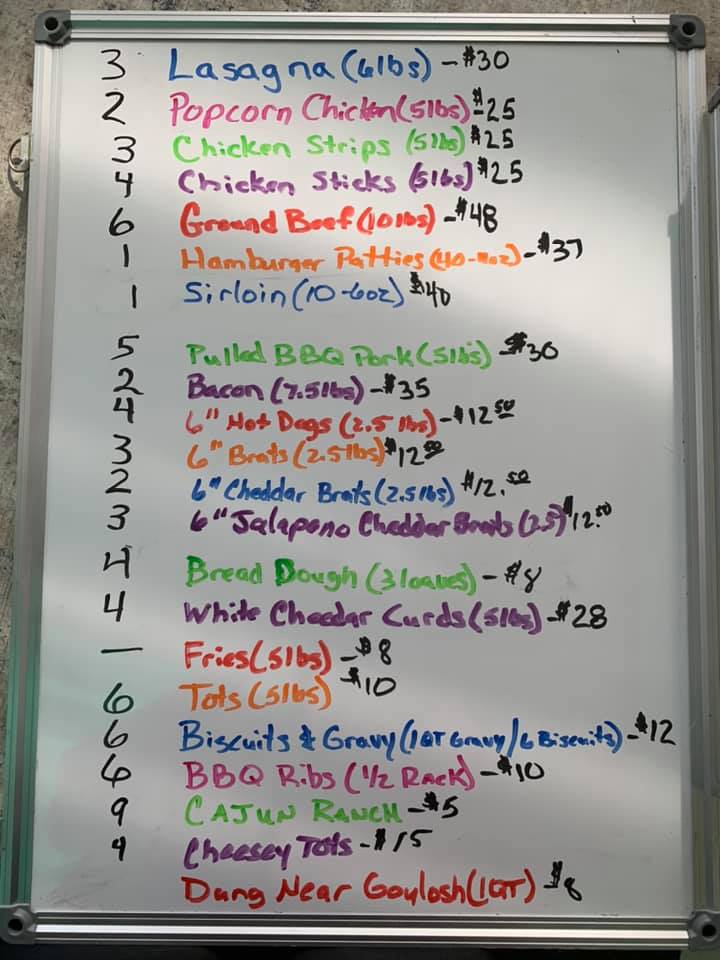 3 Lasagna (6lbs) - $30
2 Popcorn Chicken (5lbs) - $25
3 Chicken Strips (5lbs) $25
4 Chicken Sticks (5lbs) $25
6 Ground Beef (10lbs) - $48
1 Hamburger Patties (40-4oz) - $37
1 Sirloin (10-6oz) $40
5 Pulled BBQ Pork (5lbs) - $30
2 Bacon (7.5lbs) - $35
4 6" Hot Dogs (2.5 lbs) - $12 50
3 6" Brats (2.5lbs) $12 50
2 6" Cheddar Brats (2.5lbs) $12.50
3 6" Jalapeno Cheddar Brats (2.5) $12.50
4 Bread Dough (3 loaves) - $8
4 White Cheedar Curds (5lbs) - $28
— Fries (5lbs) - $8
6 Tots (5lbs) $10
6 Biscuits & Gravy (1QT Gravy/6 Biscuits) - $12
6 BBQ Ribs (1/2 Rack) - $10
9 CAJUN RANCH - $5
4 Cheesey Tots - $15
Dang Near Goulosh (1QT) $8